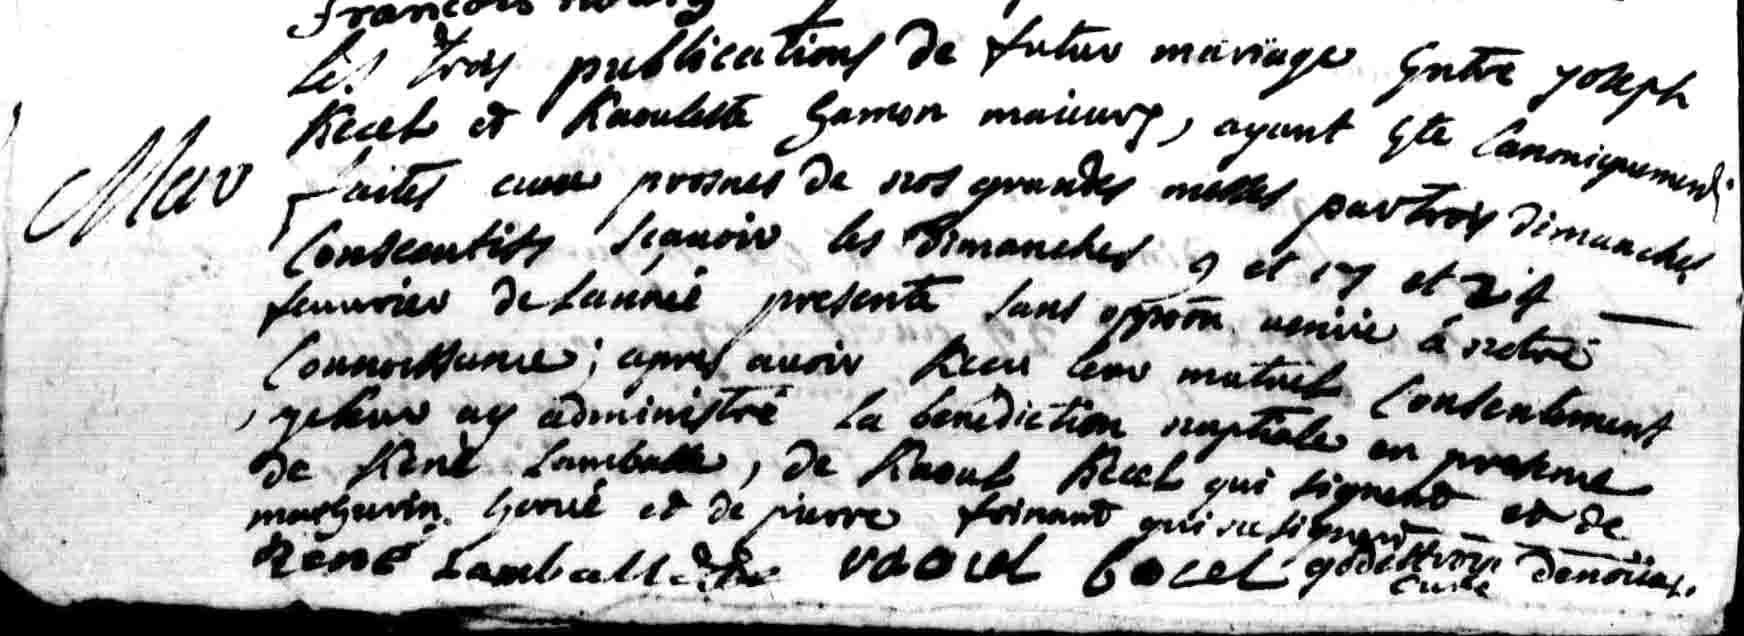 françois
les trois publications de futur mariage Entre joseph
Recel et Raoulette hamon maieurs, ayant Eté Canoniquement
Mar faites aux prosnes de nos grandes messes par trois dimanches
Consecutifs sçauoir les Dimanches 9 et 17 et
feuurier de Lanneé presente sans oppōōn venüe á notre
Connoissance; apres auoir Receu leur mutuel Consentement
je leur ay administré la benediction nuptiale en presence
de René Lamballe, de Raoul Recel qui signent et de
mathurin heruè et de pierre qui ne signent
René Lamballe raoul